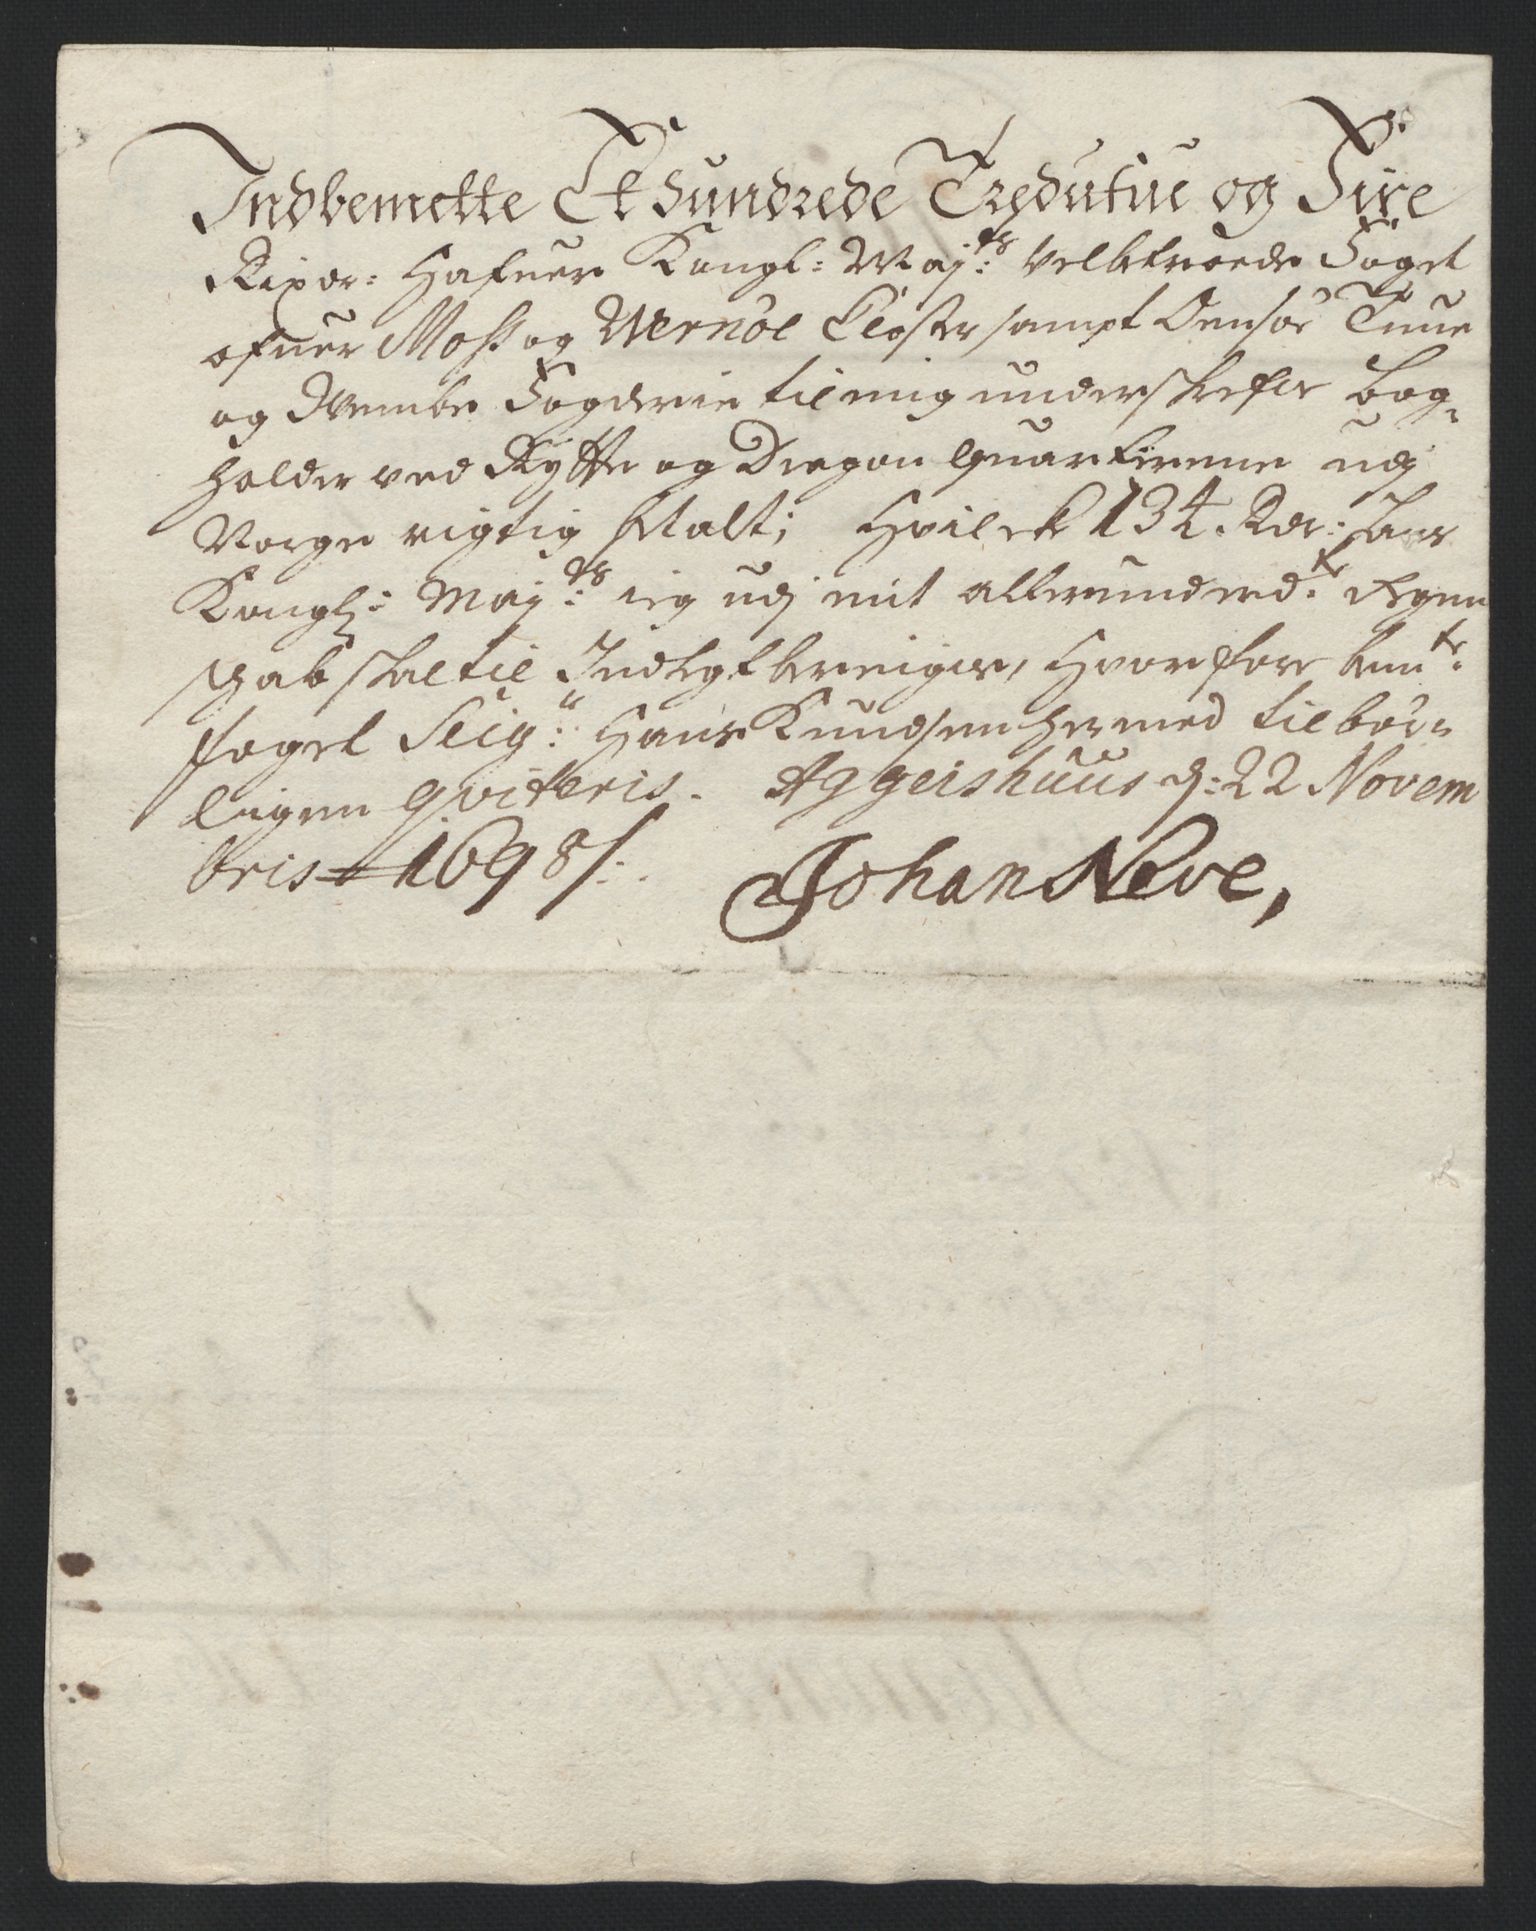 Indbemelte Et Hundrede Tredutiue og Fire
Rixdr: Hafuer Kongl: Maj:ts Velbetroede Foget
ofuer Moss og Wernöe Closter sampt Onsöe Tuue
og Wembe Fogderie til mig underskrefne bog-
holder ved Rytter og Dragon Quarterene udj
Norge rigtig bitalt; Hvilcke 134. Rdr: hans
Kongl: Maj:ts ieg udj mit allerunderd:te Regen
schab schal til Indtegt bereigne, Hvorfore bem:te
foget Seig:r Hans Knudsen hermed tilbör-
ligen qviteris. Aggershuus d: 22 Novem
bris 1698/:.
Johan Neve,